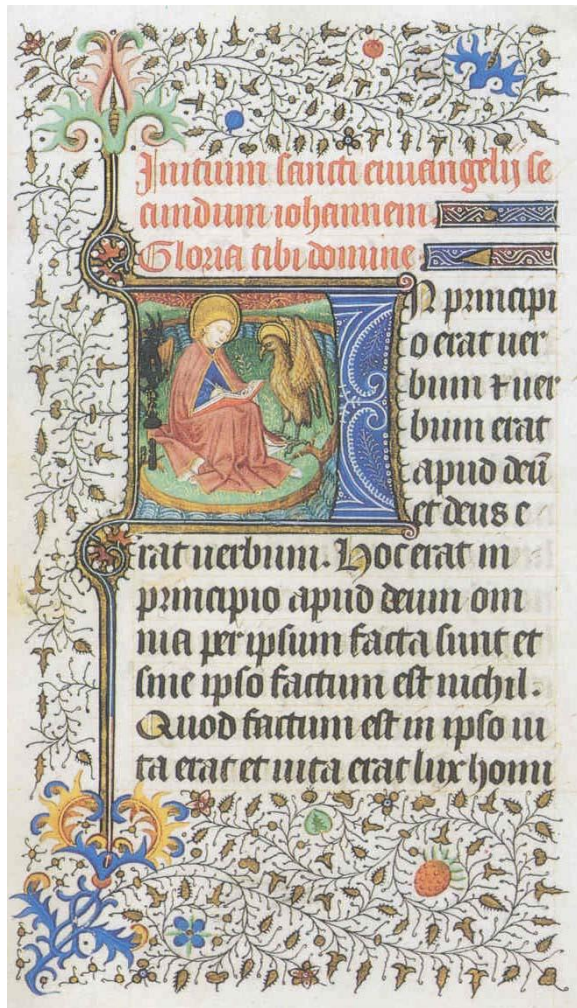 Inicium sancti euuangelij se
cundum iohannem.
Gloria tibi domine
IN principi
o erat uer
bum ⁊ uer
bum erat
apud deū
et deus e
rat uerbum. Hoc erat in
principio apud deum om
nia per ipsum facta sunt et
sine ipso factum est nichil.
Quod factum est in ipso ui
ta erat et uita erat lux homi